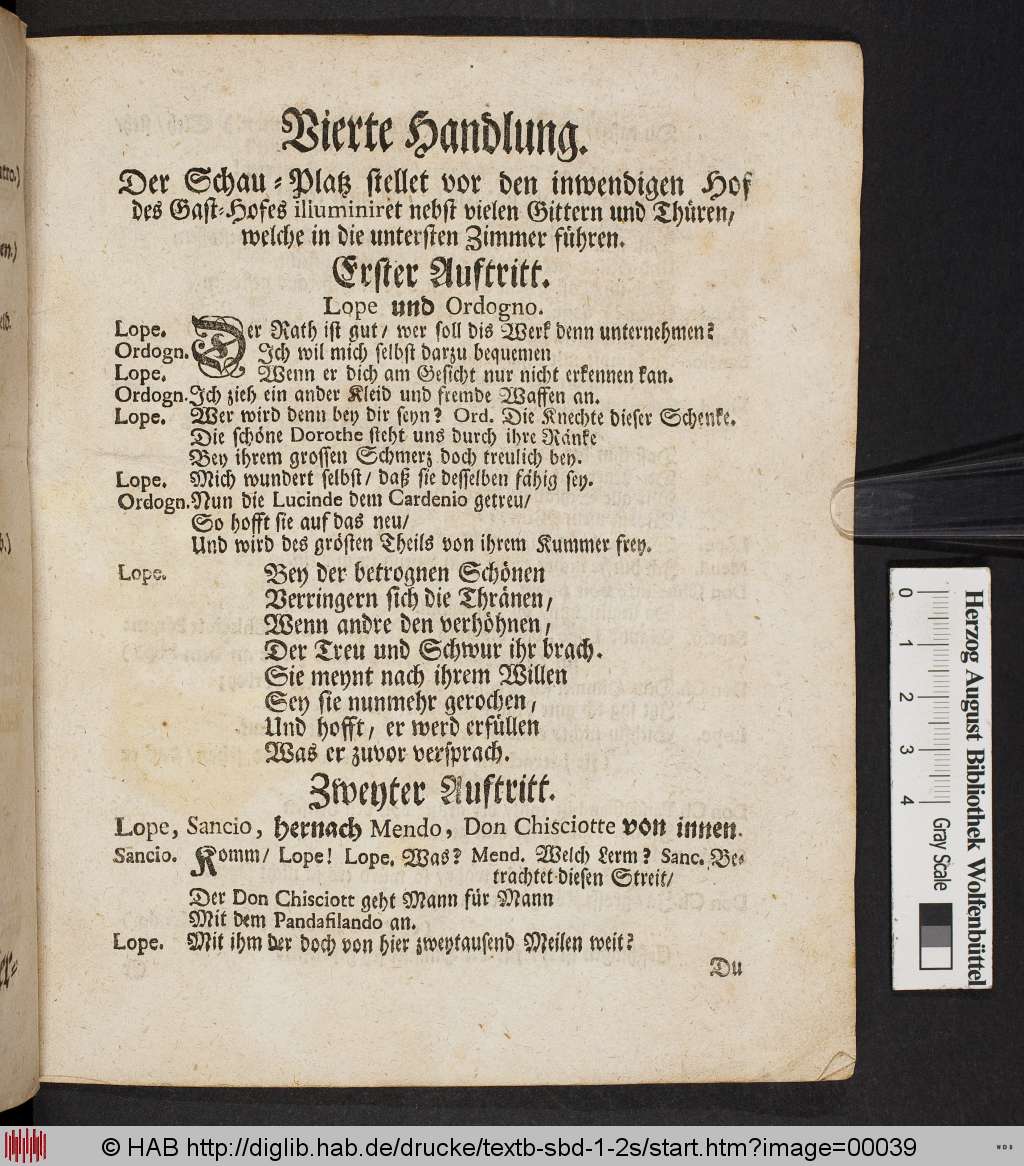 Vierte Handlung.
Der Schau-Platz stellet vor den inwendigen Hof
des Gast-Hofes illuminiret nebst vielen Gittern und Thüren/
welche in die untersten Zimmer führen.
Erster Auftritt.
Lope und Ordogno.
Lope. Der Rath ist gut/ wer soll dis Werk denn unternehmen?
Ordogn. Ich wil mich selbst darzu bequemen
Lope. Wenn er dich am Gesicht nur nicht erkennen kan.
Ordogn. Ich zieh ein ander Kleid und fremde Waffen an.
Lope. Wer wird denn bey dir seyn? Ord. Die Knechte dieser Schenke.
Die schöne Dorothe steht uns durch ihre Ränke
Bey ihrem grossen Schmerz doch treulich bey.
Lope. Mich wundert selbst/ daß sie desselben fähig sey.
Ordogn. Nun die Lucinde dem Cardenio getreu/
So hofft sie auf das neu/
Und wird des grösten Theils von ihrem Kummer frey.
Lope. Bey der betrognen Schönen
Verringern sich die Thränen/
Wenn andre den verhöhnen/
Der Treu und Schwur ihr brach.
Sie meynt nach ihrem Willen
Sey sie nunmehr gerochen/
Und hofft/ er werd erfüllen
Was er zuvor versprach.
Zweyter Auftritt.
Lope, Sancio, hernach Mendo, Don Chisciotte von innen.
Sancio. Komm/ Lope! Lope. Was? Mend. Welch Lerm? Sanc. Be-
trachtet diesen Streit/
Der Don Chisciott geht Mann für Mann
Mit dem Pandafilando an.
Lope. Mit ihm der doch von hier zweytausend Meilen weit?
Du
0 1 2 3 4
Herzog August Bibliothek Wolfenbüttel
Gray Scale
© HAB http://diglib.hab.de/drucke/textb-sbd-1-2s/start.htm?image=00039